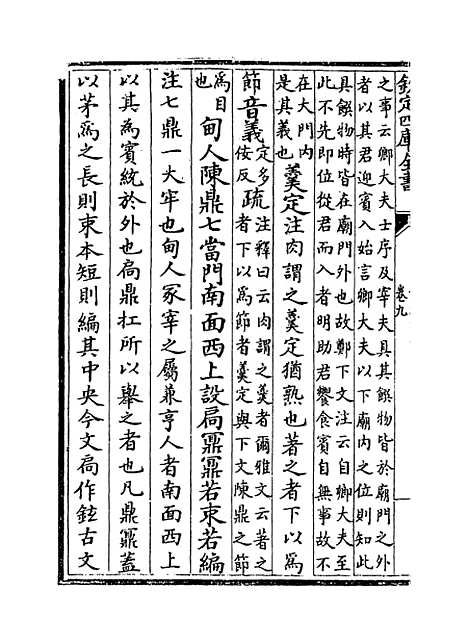 欽定四庫全書
卷九
之事云卿大夫士序及宰夫具其饌物皆於廟門之外
者以其君迎賓入始言卿大夫以下廟内之位則知此
具饌物時皆在廟門外也故鄭下文注云自卿大夫至
此不先即位從君而入者明助君饗食賓自無事故不
在大門内
是其義也
羹定注肉謂之羹定猶熟也著之者下以爲
節音義
定多
佞反
疏
注釋曰云肉謂之羹者爾雅文云著之
者下以爲節者羹定與下文陳鼎之節
爲目
也
甸人陳鼎七當門南面西上設扃鼏鼏若束若編
注七鼎一大牢也甸人冢宰之屬兼亨人者南面西上
以其為賓統於外也扃鼎扛所以舉之者也凡鼎鼏蓋
以茅爲之長則束本短則編其中央今文扃作鉉古文